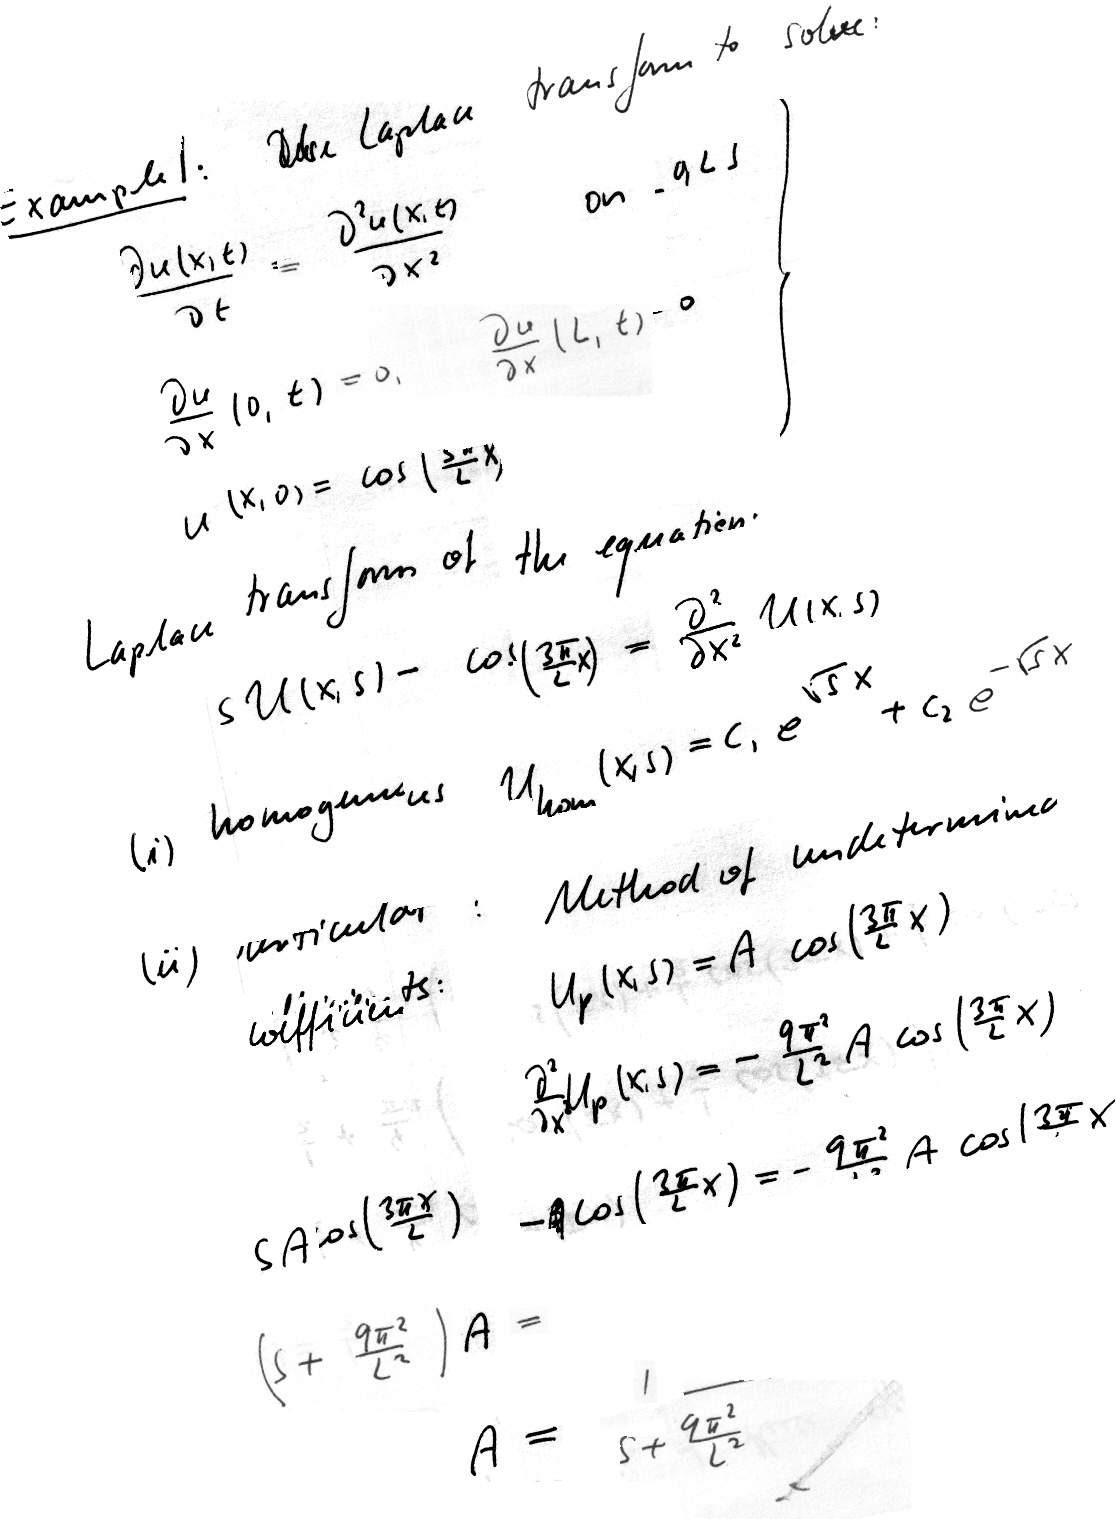 Example 1: Use Laplace transform to solve:
∂u(x,t)/∂t = ∂²u(x,t)/∂x² on
∂u/∂x (0, t) = 0, ∂u/∂x (L, t) - 0
u (x, 0) = cos (3π/L x)
Laplace transform of the equation.
s U(x, s) - cos(3π/L x) = ∂²/∂x² U(x, s)
(i) homogeneous U_hom (x, s) = C₁ e^(√s x) + C₂ e^(-√s x)
(ii) : Method of undetermined
coefficients: U_p (x, s) = A cos(3π/L x)
∂²/∂x² U_p (x, s) = - 9π²/L² A cos (3π/L x)
s A cos(3πx/L) - cos(3π/L x) = - 9π²/L² A cos(3π/L x
(s + 9π²/L²) A =
A = 1/(s + 9π²/L²)